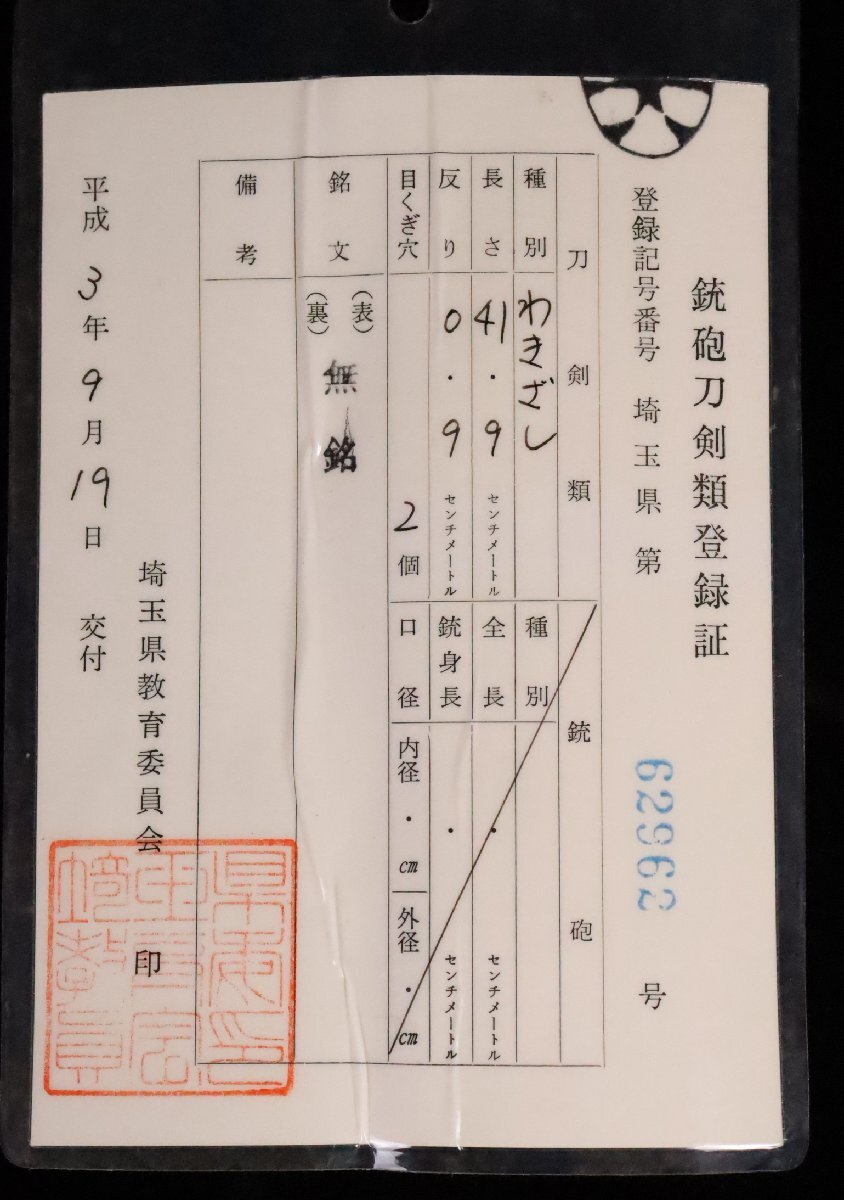 銃砲刀剣類登録証
登録記号番号 埼玉県 第 62962 号
刀剣類
種別 わきざし
長さ 41.9 センチメートル
反り 0.9 センチメートル
目くぎ穴 2個
銘文 (表) (裏) 無銘
備考
銃砲
種別
全長 . センチメートル
銃身長 . センチメートル
口径 内径 . cm 外径 . cm
平成3年9月19日 交付
埼玉県教育委員会 印